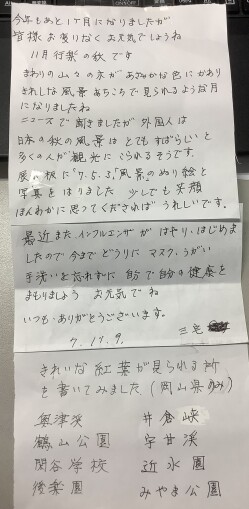 今年もあと1ケ月になりましたが
皆様お変りなくお元気でしょうね
11月行楽の秋です
まわりの山々の木があざやかな色にかがり
きれいな風景あちこちで見られるような月
になりましたね
ニュースで聞きましたが外国人は
日本の秋の風景はとてもすばらしいと
多くの人が観光にこられるそうです。
展示板に「7.5.3」風景のぬり絵と
写真をはりました 少しでも笑顔
ほんわかに思ってくださればうれしいです。
最近またインフルエンザがはやりはじめま
したので今までどうりにマスク、うがい
手洗いを忘れずに自分で自分の健康を
まもりましょう お元気でね
いつもありがとうございます。
7.11.9.
三宅
きれいな紅葉が見られる所
を書いてみました(岡山県のみ)
奥津渓 井倉峡
鶴山公園 宇甘渓
閑谷学校 近水園
後楽園 みやま公園